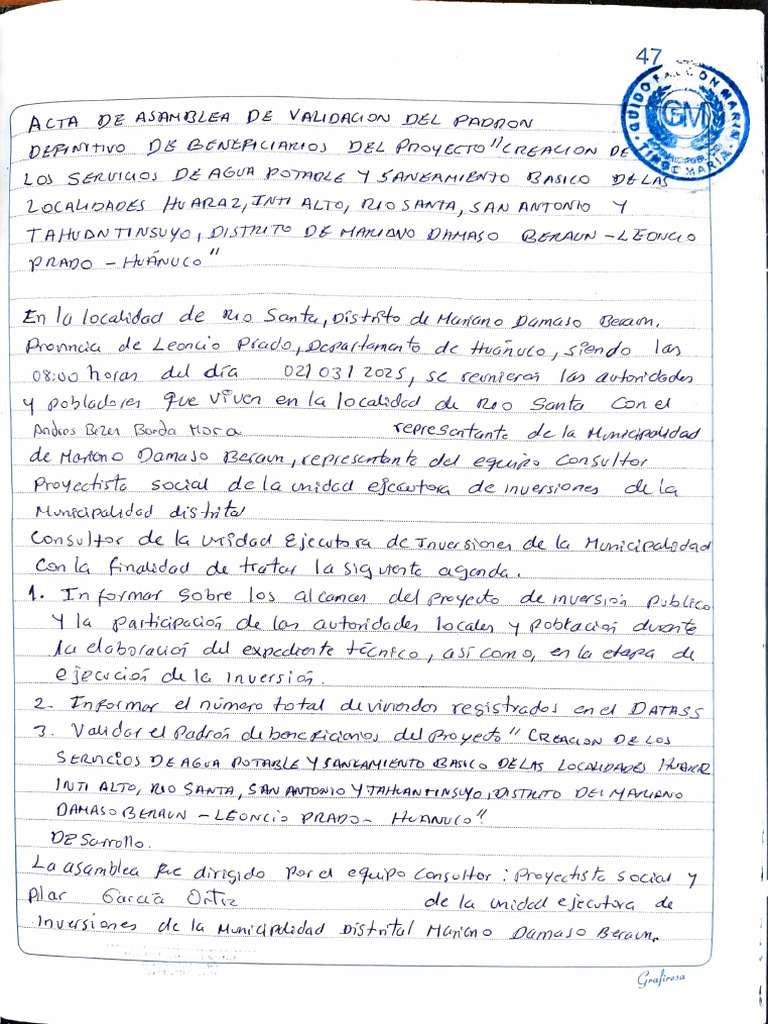 47
GUIDO FALCON MARIN
GFM
TINGO MARIA
ACTA DE ASAMBLEA DE VALIDACION DEL PADRON
DEFINITIVO DE BENEFICIARIOS DEL PROYECTO "CREACION DE
LOS SERVICIOS DE AGUA POTABLE Y SANEAMIENTO BASICO DE LAS
LOCALIDADES HUARAZ, INTI ALTO, RIO SANTA, SAN ANTONIO Y
TAHUANTINSUYO, DISTRITO DE MARIANO DAMASO BERAUN - LEONCIO
PRADO - HUÁNUCO"
En la localidad de Rio Santa, Distrito de Mariano Damaso Beraun,
Provincia de Leoncio Prado, Departamento de Huánuco, siendo las
08:00 horas del día 02/03/2025, se reunieron las autoridades
y pobladores que viven en la localidad de Rio Santa con el
Andres Bezer Borda Mora representante de la Municipalidad
de Mariano Damaso Beraun, representante del equipo consultor
Proyectista social de la unidad ejecutora de inversiones de la
Municipalidad distrital
Consultor de la unidad Ejecutora de Inversiones de la Municipalidad
con la finalidad de tratar la siguiente agenda.
1. Informar sobre los alcances del proyecto de inversión publico
y la participación de las autoridades locales y población durante
la elaboración del expediente técnico, así como, en la etapa de
ejecución de la inversión.
2. Informar el número total de viviendas registrados en el DATASS
3. Validar el Padrón de beneficiarios del Proyecto "CREACION DE LOS
SERVICIOS DE AGUA POTABLE Y SANEAMIENTO BASICO DE LAS LOCALIDADES HUARAZ
INTI ALTO, RIO SANTA, SAN ANTONIO Y TAHUANTINSUYO, DISTRITO DEL MARIANO
DAMASO BERAUN - LEONCIO PRADO - HUANUCO".
DESarrollo.
La asamblea fue dirigido por el equipo consultor: Proyectista social y
Pilar García Ortiz de la unidad ejecutora de
Inversiones de la Municipalidad Distrital Mariano Damaso Beraun.
Grafirosa